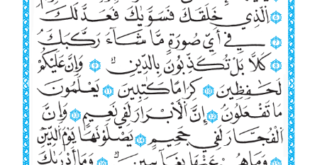 ٱلَّذِى خَلَقَكَ فَسَوَّىٰكَ فَعَدَلَكَ
فِىٓ أَىِّ صُورَةٍ مَّا شَآءَ رَكَّبَكَ
كَلَّا بَلْ تُكَذِّبُونَ بِٱلدِّينِ وَإِنَّ عَلَيْكُمْ
لَحَٰفِظِينَ كِرَامًا كَٰتِبِينَ يَعْلَمُونَ
مَا تَفْعَلُونَ إِنَّ ٱلْأَبْرَارَ لَفِى نَعِيمٍ وَإِنَّ
ٱلْفُجَّارَ لَفِى جَحِيمٍ يَصْلَوْنَهَا يَوْمَ ٱلدِّينِ